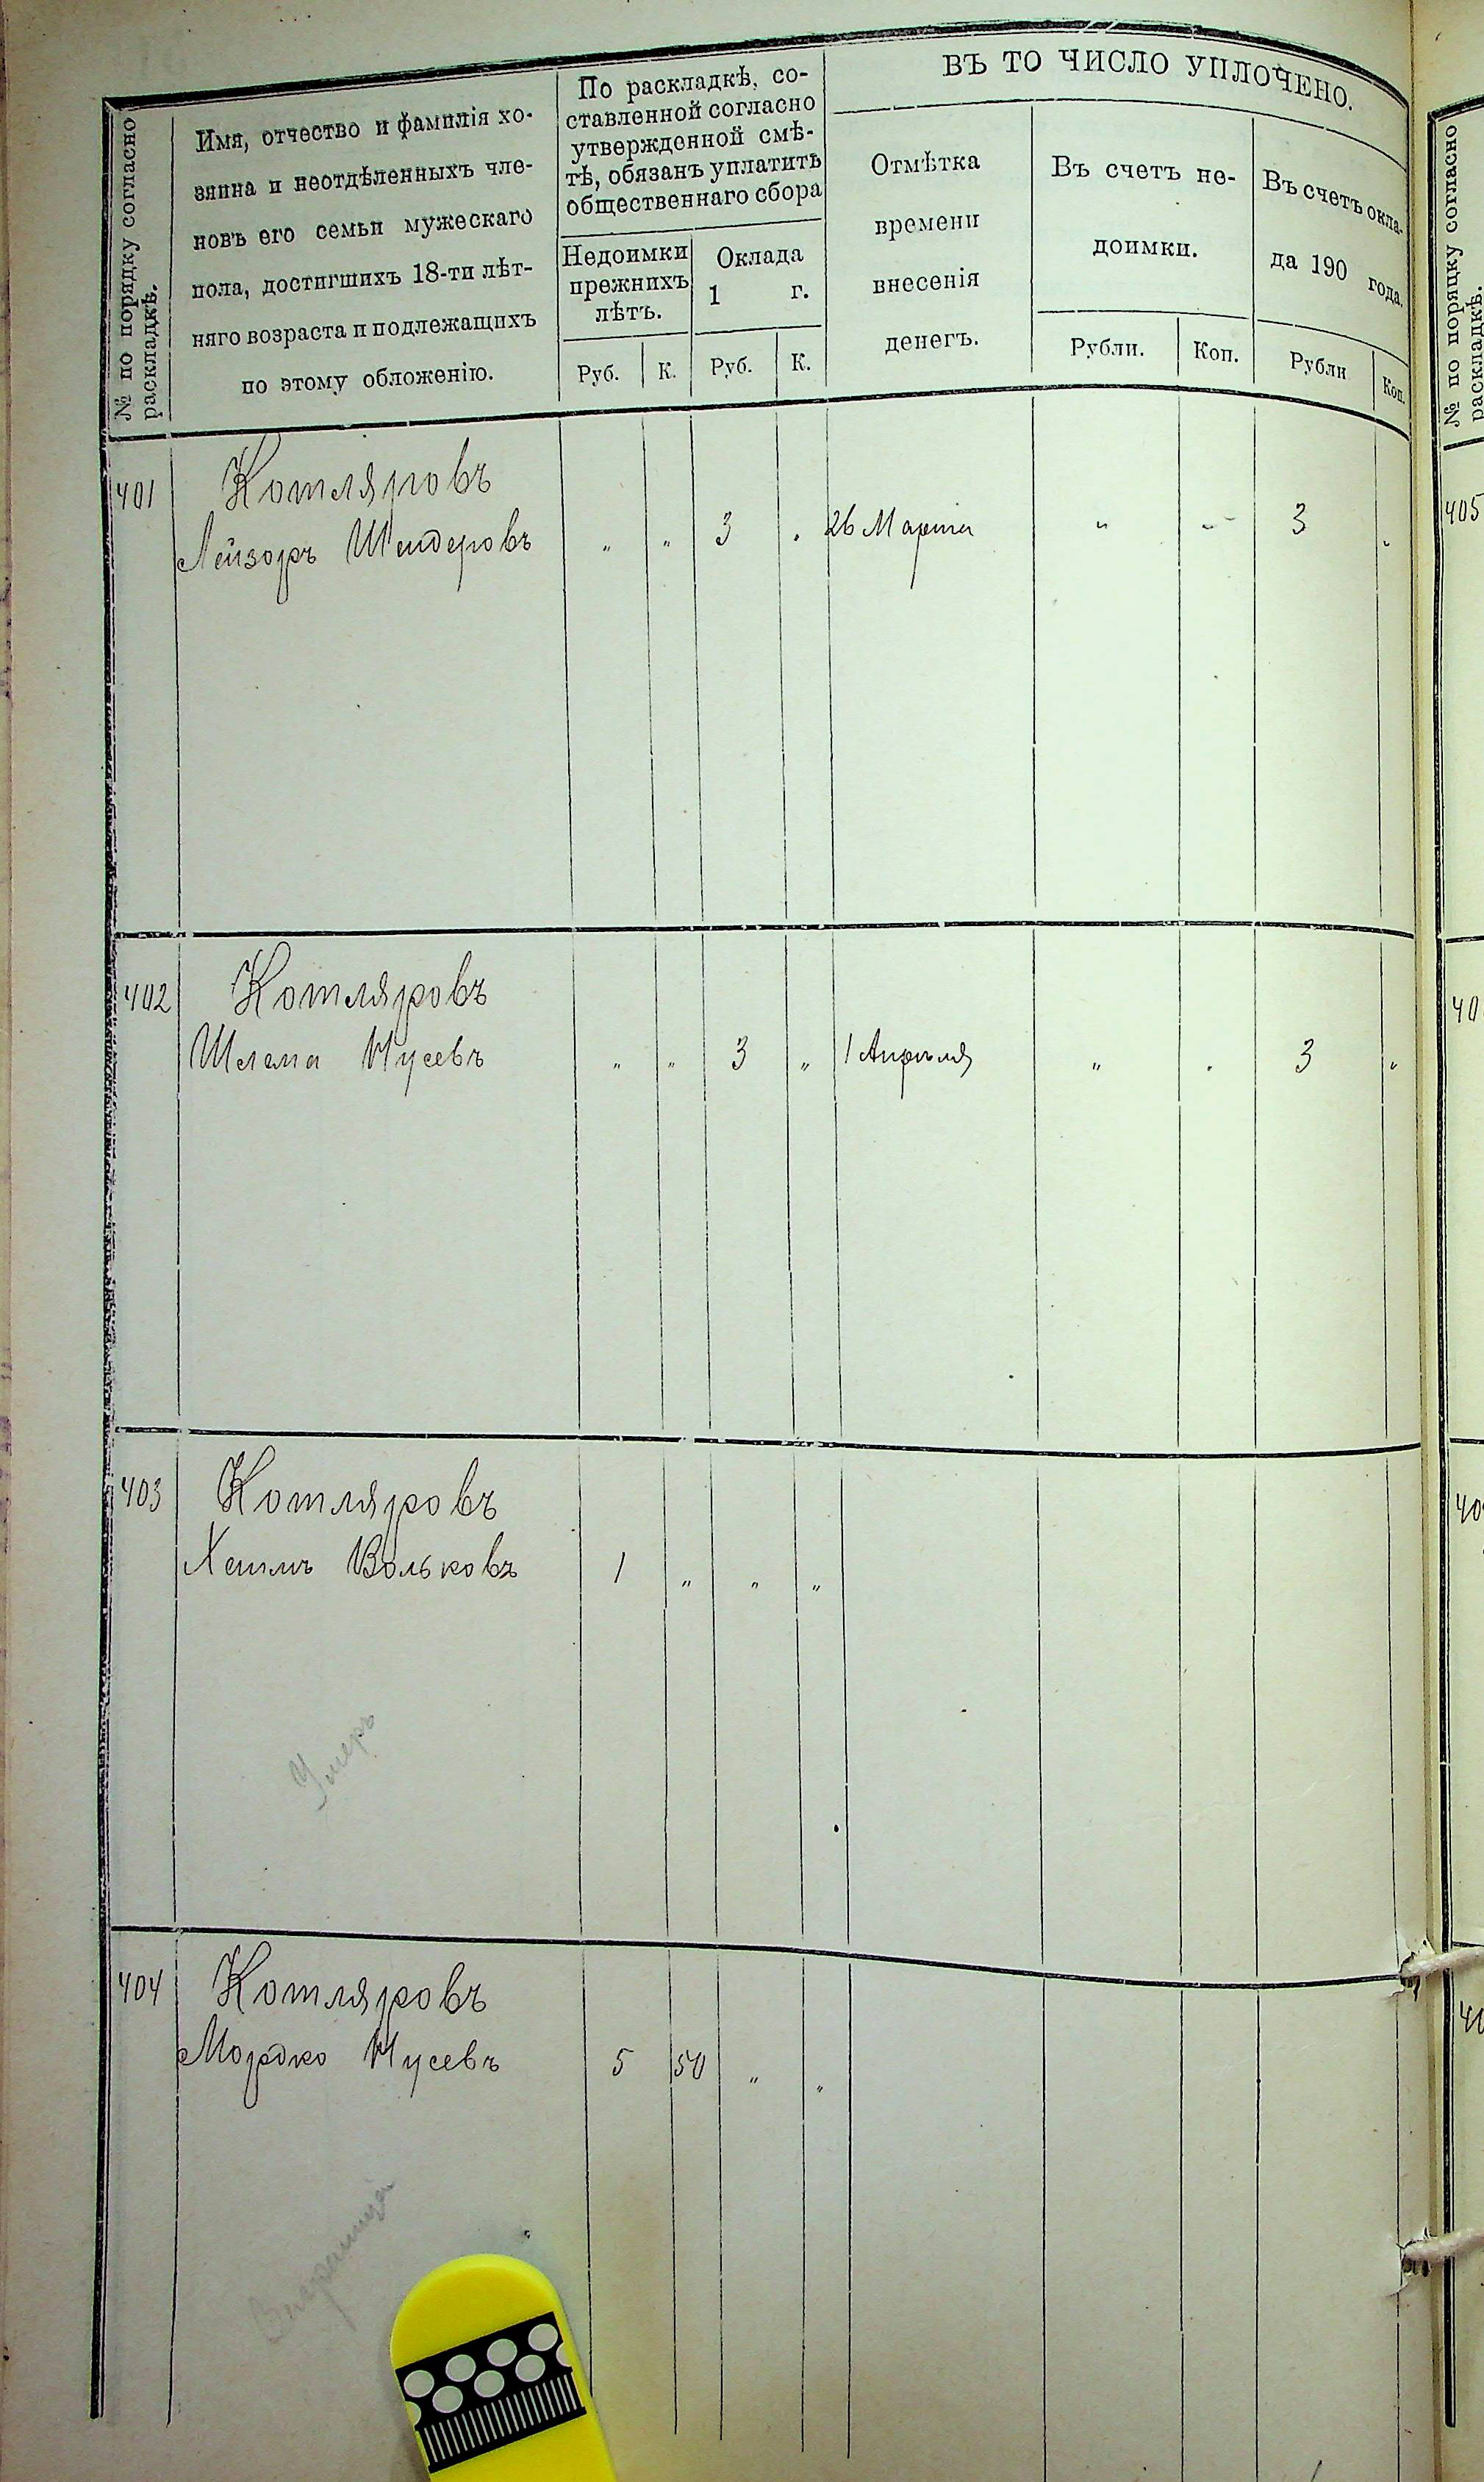 ВЪ ТО ЧИСЛО УПЛОЧЕНО.
№ по порядку согласно
раскладкѣ.
Имя, отчество и фамилія хо-
зяина и неотдѣленныхъ чле-
новъ его семьи мужескаго
пола, достигшихъ 18-ти лѣт-
няго возраста и подлежащихъ
по этому обложенію.
По раскладкѣ, со-
ставленной согласно
утвержденной смѣ-
тѣ, обязанъ уплатить
общественнаго сбора
Недоимки
прежнихъ
лѣтъ.
Оклада
1 г.
Руб. К. Руб. К.
Отмѣтка
времени
внесенія
денегъ.
Въ счетъ не-
доимки.
Рубли. Коп.
Въ счетъ окла-
да 190 года.
Рубли Коп.
401 Котляровъ
Лейзоръ Шендеровъ „ „ 3 „ 26 Марта „ „ 3 „
402 Котляровъ
Шлема Нусевъ „ „ 3 „ 1 Апрѣля „ „ 3 „
403 Котляровъ
Хаимъ Вольковъ 1 „ „ „
Умеръ
404 Котляровъ
Мордко Нусевъ 5 50 „ „
№ по порядку согласно
раскладкѣ.
405